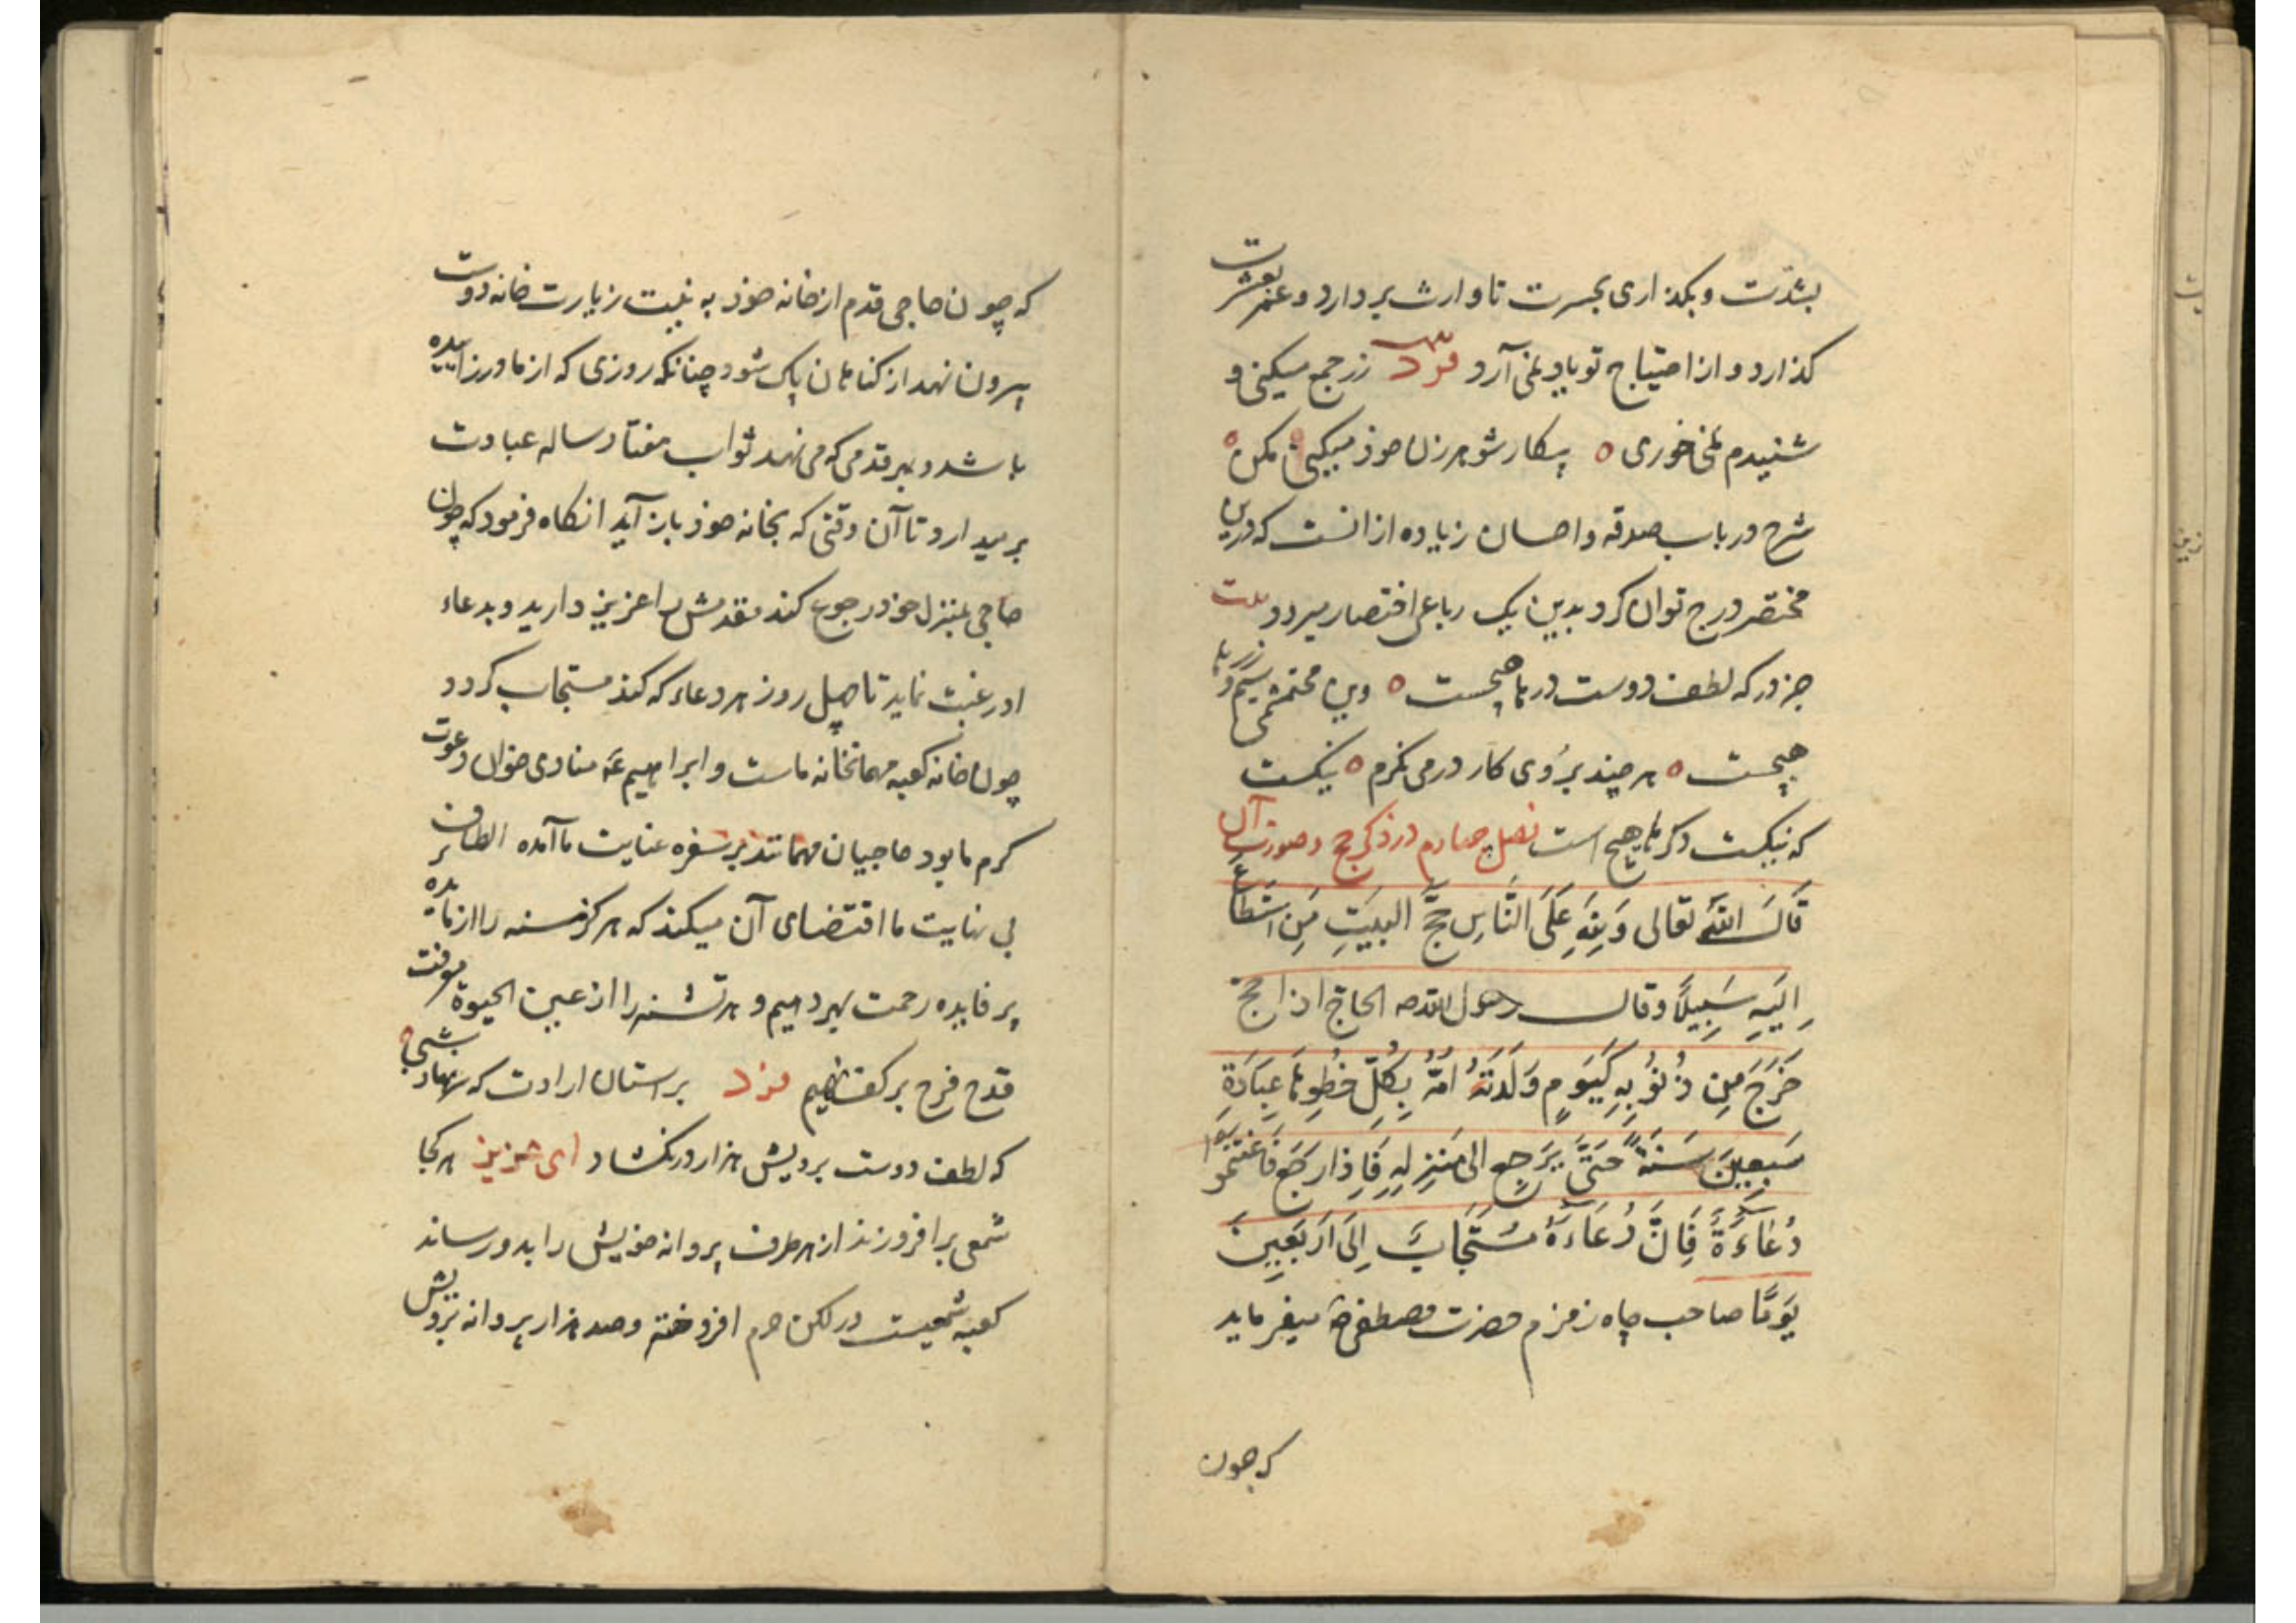 بشدت و بگذاری بحسرت تا وارث بردارد و عنعشرت
گذارد و از احتیاج تو یاد نمی آرد فرد زر جمع میکنی و
شنیدم نمی خوری ٥ بیکار شو هر زن خوذ میکنی مکن ٥
شرح در باب صدقه و احسان زیاده از انست که درین
مختصر درج توان کرد بدین یک رباعی اختصار میرود بیت
جز در که لطف دوست درها هیچست ٥ وین محتشمی سیم و زرها
هیچست ٥ هر چند بروی کار در می نگرم ٥ نیکست
که نیکست دکرها هیچ است فصل چهارم در ذکر حج و صورت آن
قَالَ اللّٰه تعالی وَ لِلّٰهِ عَلَی النَّاسِ حَجُّ البَیتِ مَنِ استَطَاعَ
اِلَیهِ سَبِیلًا وقال رسول الله صه الحاج اذا حج
خَرَجَ مِن ذُنُوبِهِ کَیَومٍ وَلَدَتهُ اُمُّهُ بِکُلِّ خطوة عِبَادَةِ
سَبعِینَ سَنَةً حَتَّی یَرجع الی مَنزِلِهِ فَاِذَا رَجَعَ فَاغتَنِمُوا
دُعَاءَهُ فَاِنَّ دُعَاءَهُ مُستَجَابٌ اِلَی اَربَعِینَ
یَومًا صاحب چاه زمزم حضرت مصطفی صه میفرماید
که چون
که چون حاجی قدم از خانه خوذ به نیت زیارت خانه دوست
بیرون نهد از کناهان پاک شود چنانکه روزی که از مادر زاییده
باشد و بهر قدمی که می نهد ثواب هفتاد ساله عبادت
بر میدارد تا آن وقتی که بخانه خوذ باز آید انکاه فرمود که چون
حاجی بمنزل خود رجوع کند مقدمش را عزیز دارید و بدعاء
او رغبت نماید تا چهل روز هر دعاء که کند مستجاب کردد
چون خانه کعبه مهمانخانه ماست و ابراهیم عه منادی خوان دعوت
کرم ما بود حاجیان مهمانند بر سفره عنایت ما آمده الطاف
بی نهایت ما اقتضای آن میکند که هر کرسنه را از مایده
پر فایده رحمت بهر دهیم و هر تشنه را از عین الحیوة معرفت
قدح فرح بر کف نهیم فرد بر استان ارادت که سر نهاد شبی ٥
که لطف دوست برویش هزار در نکشاد ای عزیز هر کجا
شمعی برافروزند از هر طرف پروانه خویش را بدو رساند
کعبه شمعیست در لکن حرم افروخته و صد هزار پروانه برویش